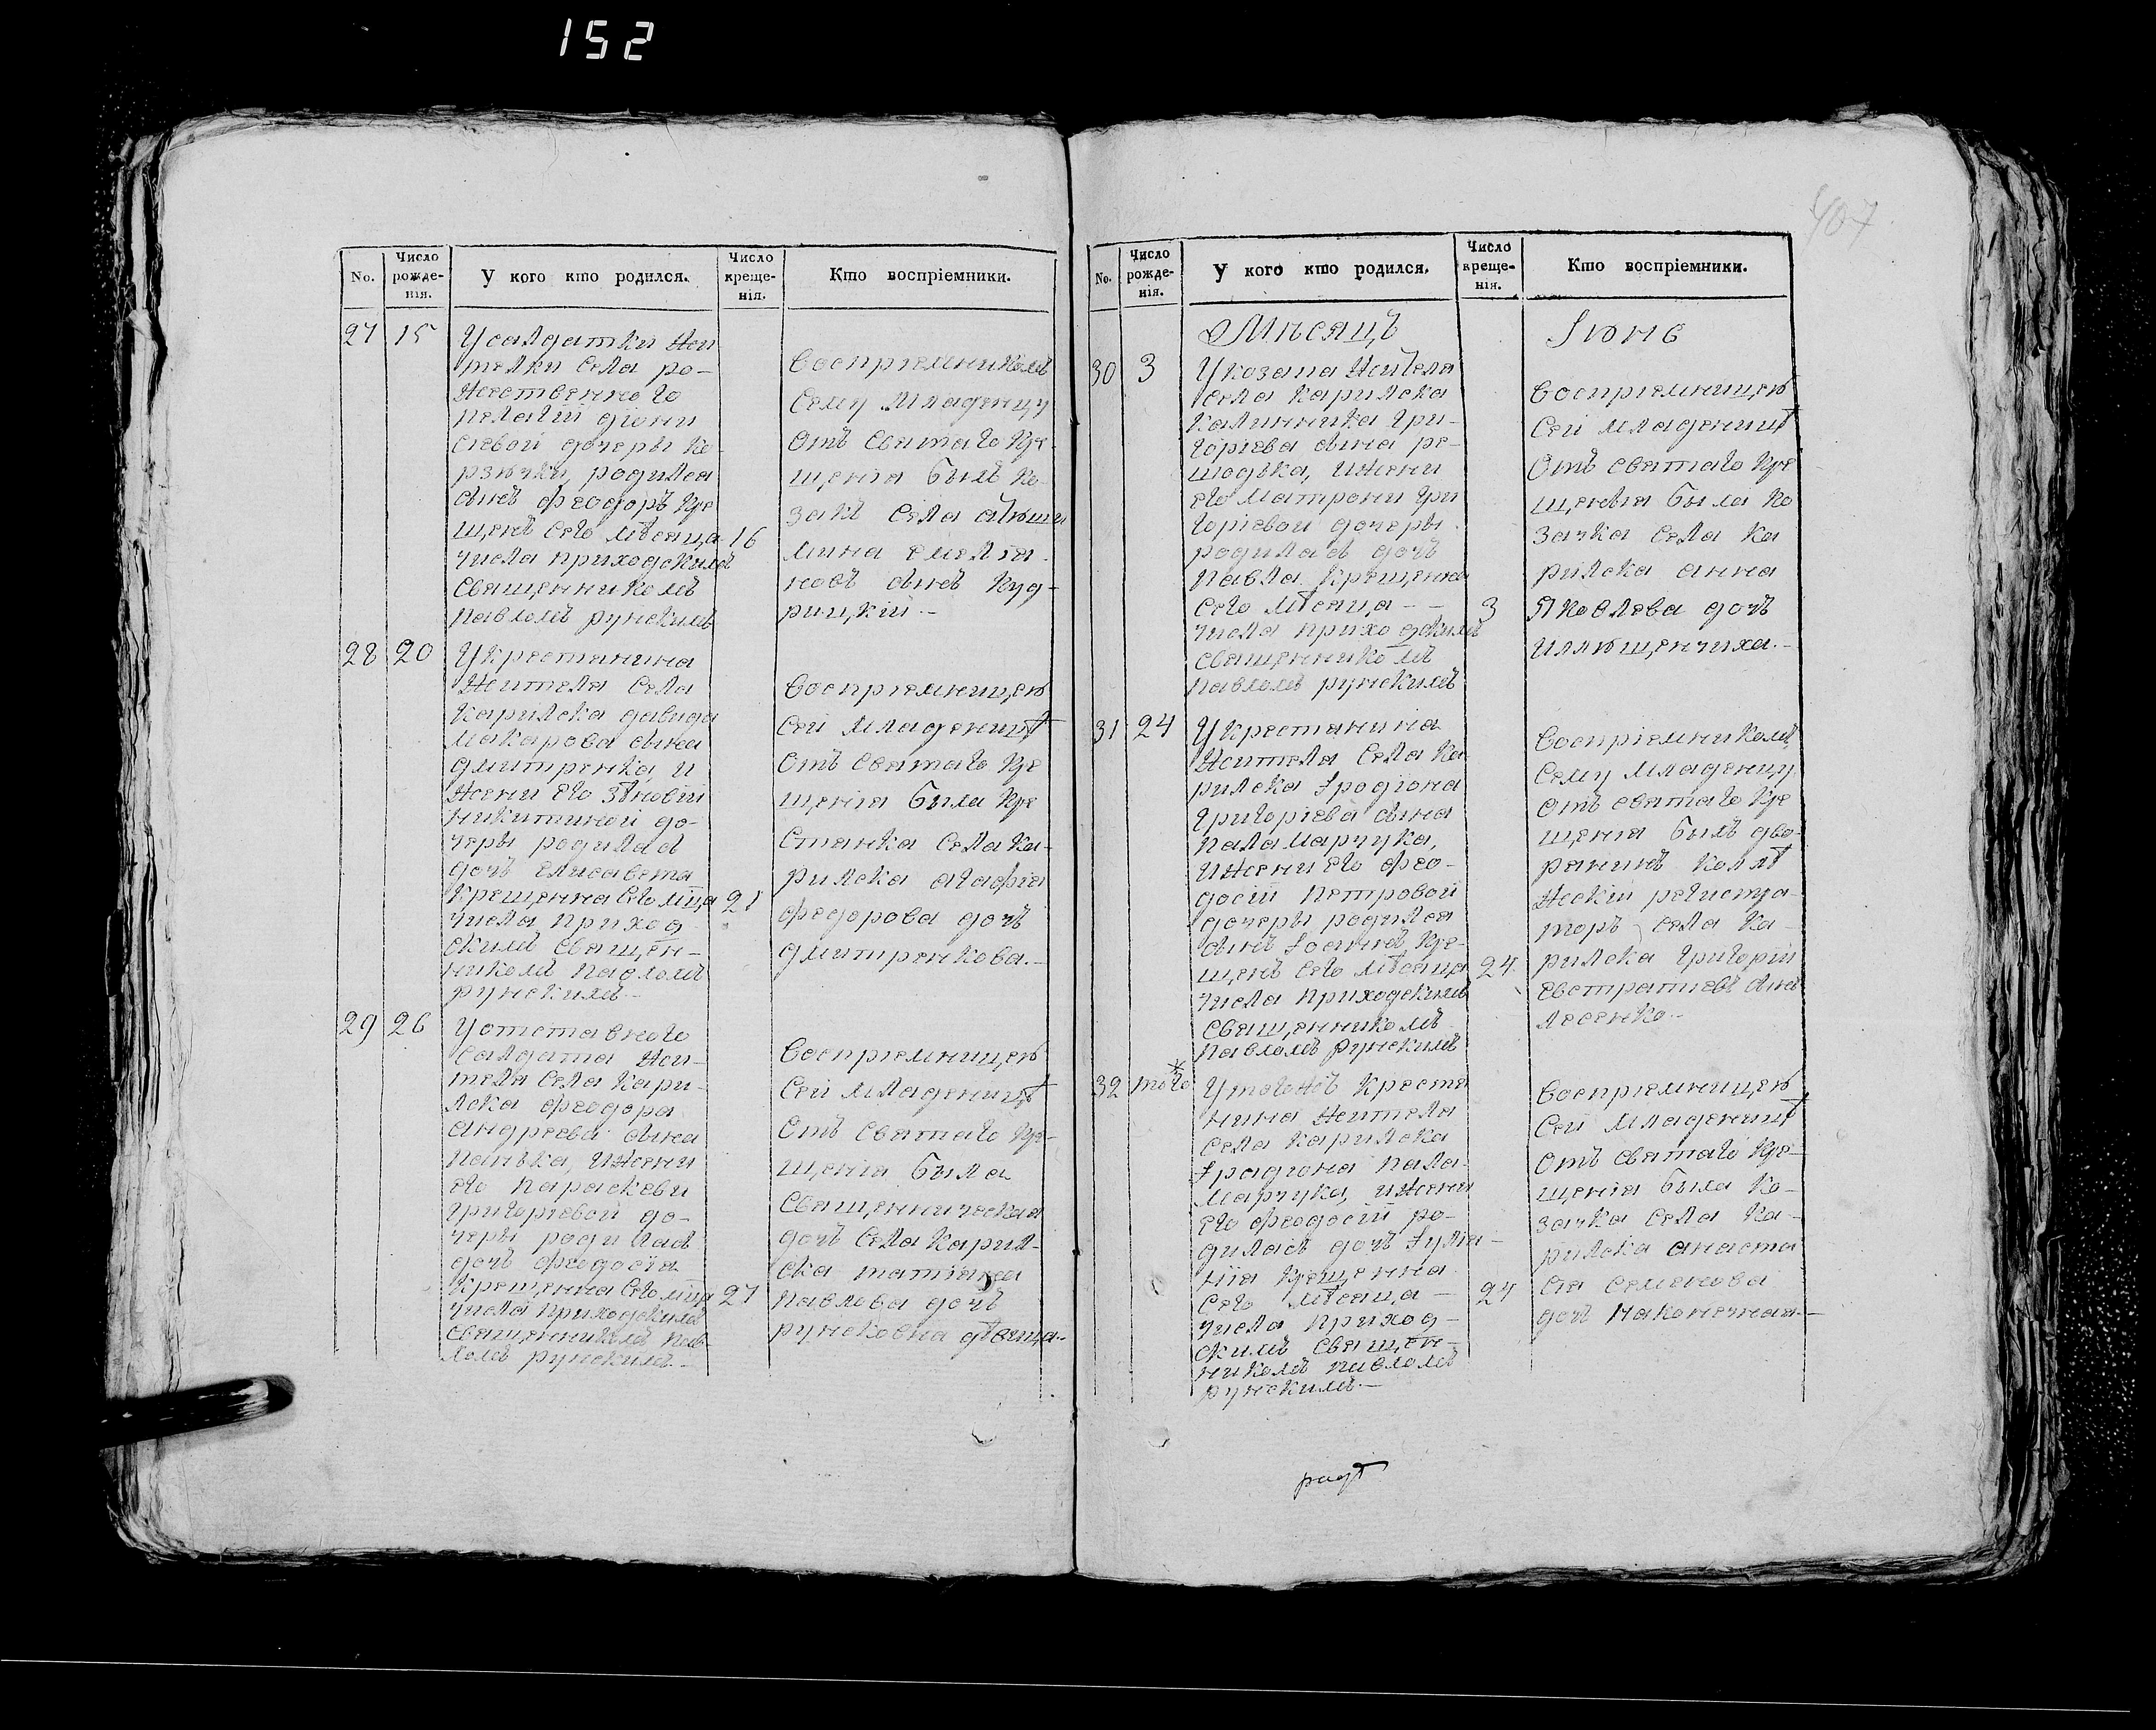 152
407
No.
Число рожде- нія.
У кого кто родился.
Число креще- нія.
Кто воспріемники.
27 15
У салдатки жи
телки села ро-
жественного
пелагіи діони
сіевой дочеры Ко
рзѣчки, родился
сынъ феодоръ кре
щенъ сего мѣсяца 16
числа приходскимъ
священникомъ
павломъ рунскимъ
воспріемникомъ
сему младенцу
отъ святаго кре-
щенія былъ ко
закъ села
мина емелія
новъ сынъ куд-
рицкій.-
28 20
У крестянина
жителя села
карилска давида
макарова сына
дмитренка, и
жени его зѣновіи
никитиной до-
черы родилась
дочъ елисавета
крещенна сего мца 21
числа приход
скимъ священ-
никомъ павломъ
рунскимъ.-
воспріемницею
сей младеницѣ
отъ святаго кре
щенія была кре
стянка села ка-
рилска агафія
федорова дочъ
дмитренкова.-
29 26
У отставного
салдата жи-
теля села кари-
лска феодора
андреева сына
панъка, и жени
его параскеви
григоріевой до-
черы родилась
дочъ феодосія
крещенна сего мца 27
числа приходскимъ
священникомъ пав-
ломъ рунскимъ.-
воспріемницею
сей младеницѣ
отъ святаго кре-
щенія была
священническая
дочъ села карил-
ска татіана
павлова дочъ
рунсковна дѣвица.-
No.
Число рожде- нія.
У кого кто родился.
Число креще- нія.
Кто воспріемники.
Мѣсяцъ Іюнь
30 3
У козака жителя
села карилска
калинника гри-
горіева сына ре-
шодъка, и жени
его матрони гри
горіевой дочеры
родилась дочъ
павла крещенна
сего мѣсяца - - 3
числа приходскимъ
священникомъ
павломъ рунскимъ
воспріемницею
сей младеницѣ
отъ святаго кре
щенъія была ко
зачка села ка
рилска анна
Яковлева дочъ
илляшенчиха.-
31 24
У крестянина
жителя села ка
рилска Іродіона
григоріева сына
паламарчука,
и жени его фео-
досіи петровой
дочеры родился
сынъ Іоаннъ, кре-
щенъ сего мѣсяца 24
числа приходскимъ
священникомъ
павломъ рунскимъ
воспріемникомъ
сему младенцу
отъ святаго кре
щенія былъ дво-
рянинъ коллѣ
жскій регистра-
торъ села ка-
рилска григорій
евстратіевъ сынъ
лесенко.-
32 *того
У тогожъ крестя
нина жителя
села карилска
Ірадіона пала-
марчука, и жени
его феодосіи ро-
дилась дочъ Іулія-
нія крещенна
сего мѣсяца - 24
числа приход-
скимъ священ-
никомъ павломъ
рунскимъ.-
воспріемницею
сей младеницѣ
отъ святаго кре-
щенія была ко-
зачка села ка-
рилска анаста
сія семенова
дочъ наконечная.-